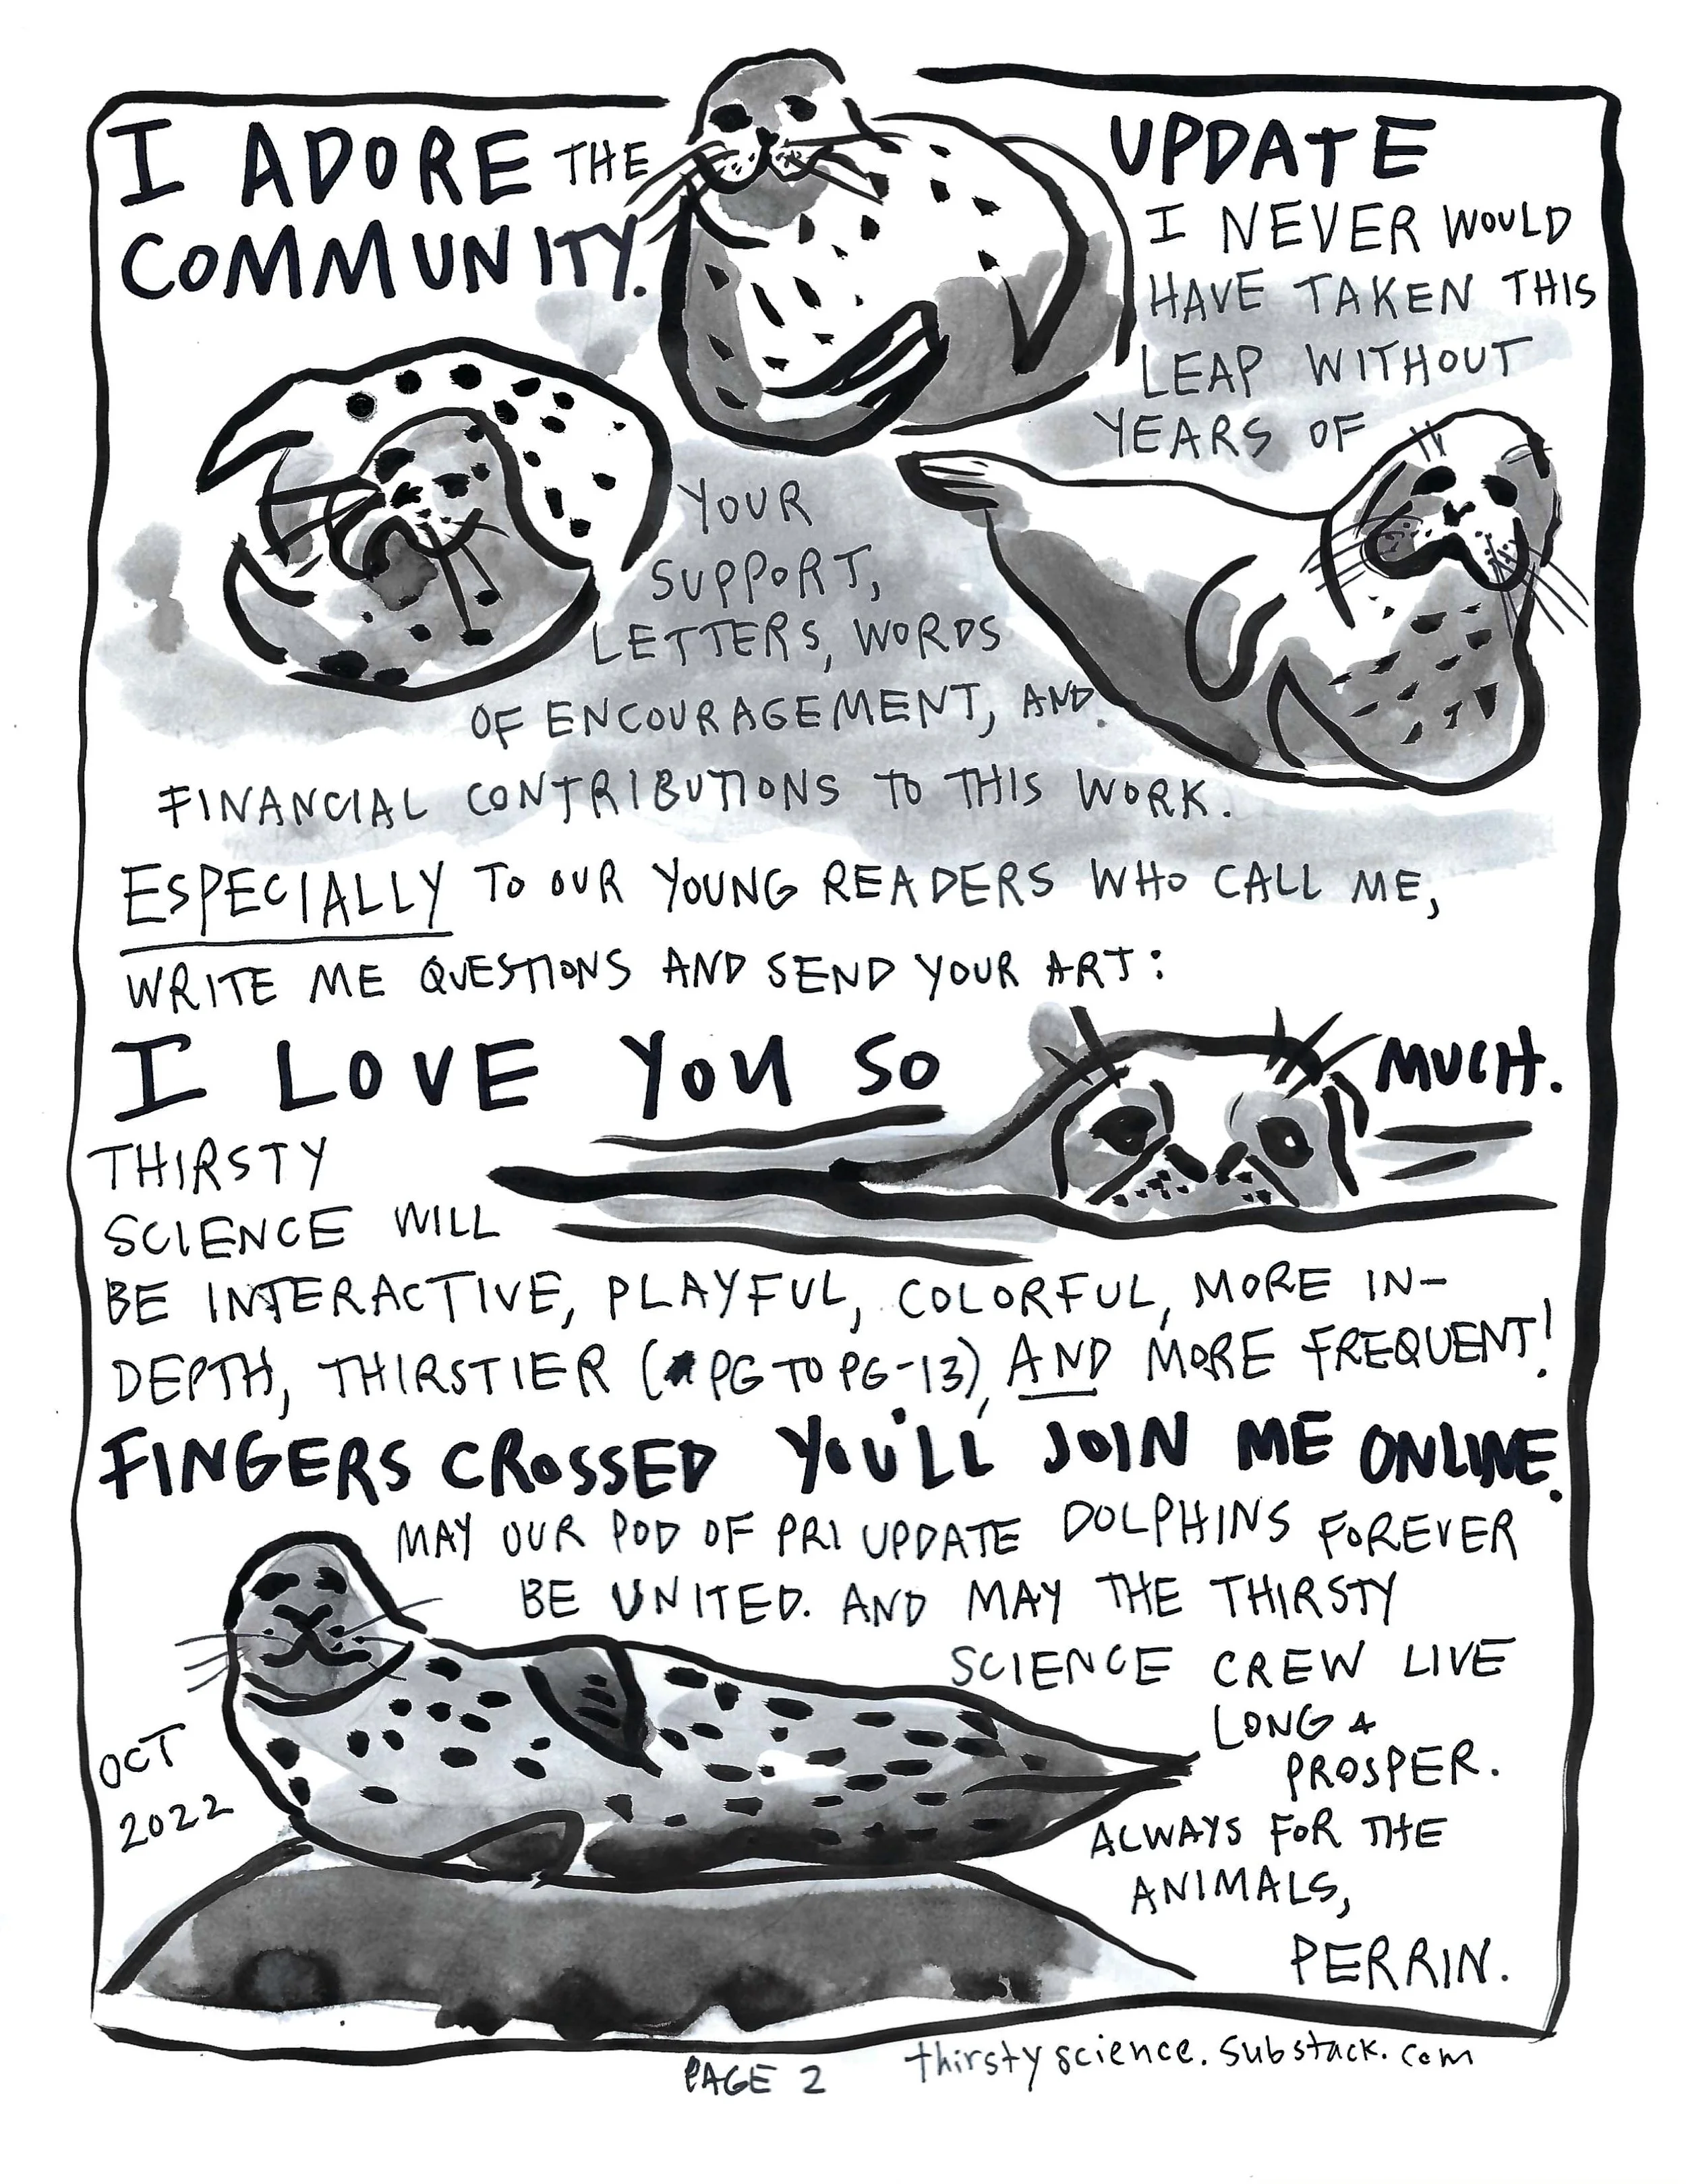 I ADORE THE
COMMUNITY.
UPDATE
I NEVER WOULD
HAVE TAKEN THIS
LEAP WITHOUT
YEARS OF
YOUR
SUPPORT,
LETTERS, WORDS
OF ENCOURAGEMENT, AND
FINANCIAL CONTRIBUTIONS TO THIS WORK.
ESPECIALLY TO OUR YOUNG READERS WHO CALL ME,
WRITE ME QUESTIONS AND SEND YOUR ART:
I LOVE YOU SO MUCH.
THIRSTY
SCIENCE WILL
BE INTERACTIVE, PLAYFUL, COLORFUL, MORE IN-
DEPTH, THIRSTIER (PG TO PG-13), AND MORE FREQUENT!
FINGERS CROSSED YOU'LL JOIN ME ONLINE.
MAY OUR POD OF PRI UPDATE DOLPHINS FOREVER
BE UNITED. AND MAY THE THIRSTY
SCIENCE CREW LIVE
LONG &
PROSPER.
ALWAYS FOR THE
ANIMALS,
PERRIN.
OCT
2022
PAGE 2
thirstyscience.substack.com